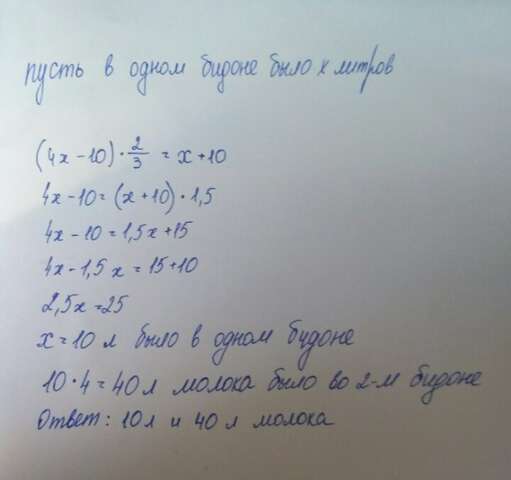 пусть в одном бидоне было x литров
(4x - 10) · 2/3 = x + 10
4x - 10 = (x + 10) · 1,5
4x - 10 = 1,5x + 15
4x - 1,5x = 15 + 10
2,5x = 25
x = 10 л было в одном бидоне
10 · 4 = 40 л молока было во 2-м бидоне
Ответ: 10 л и 40 л молока